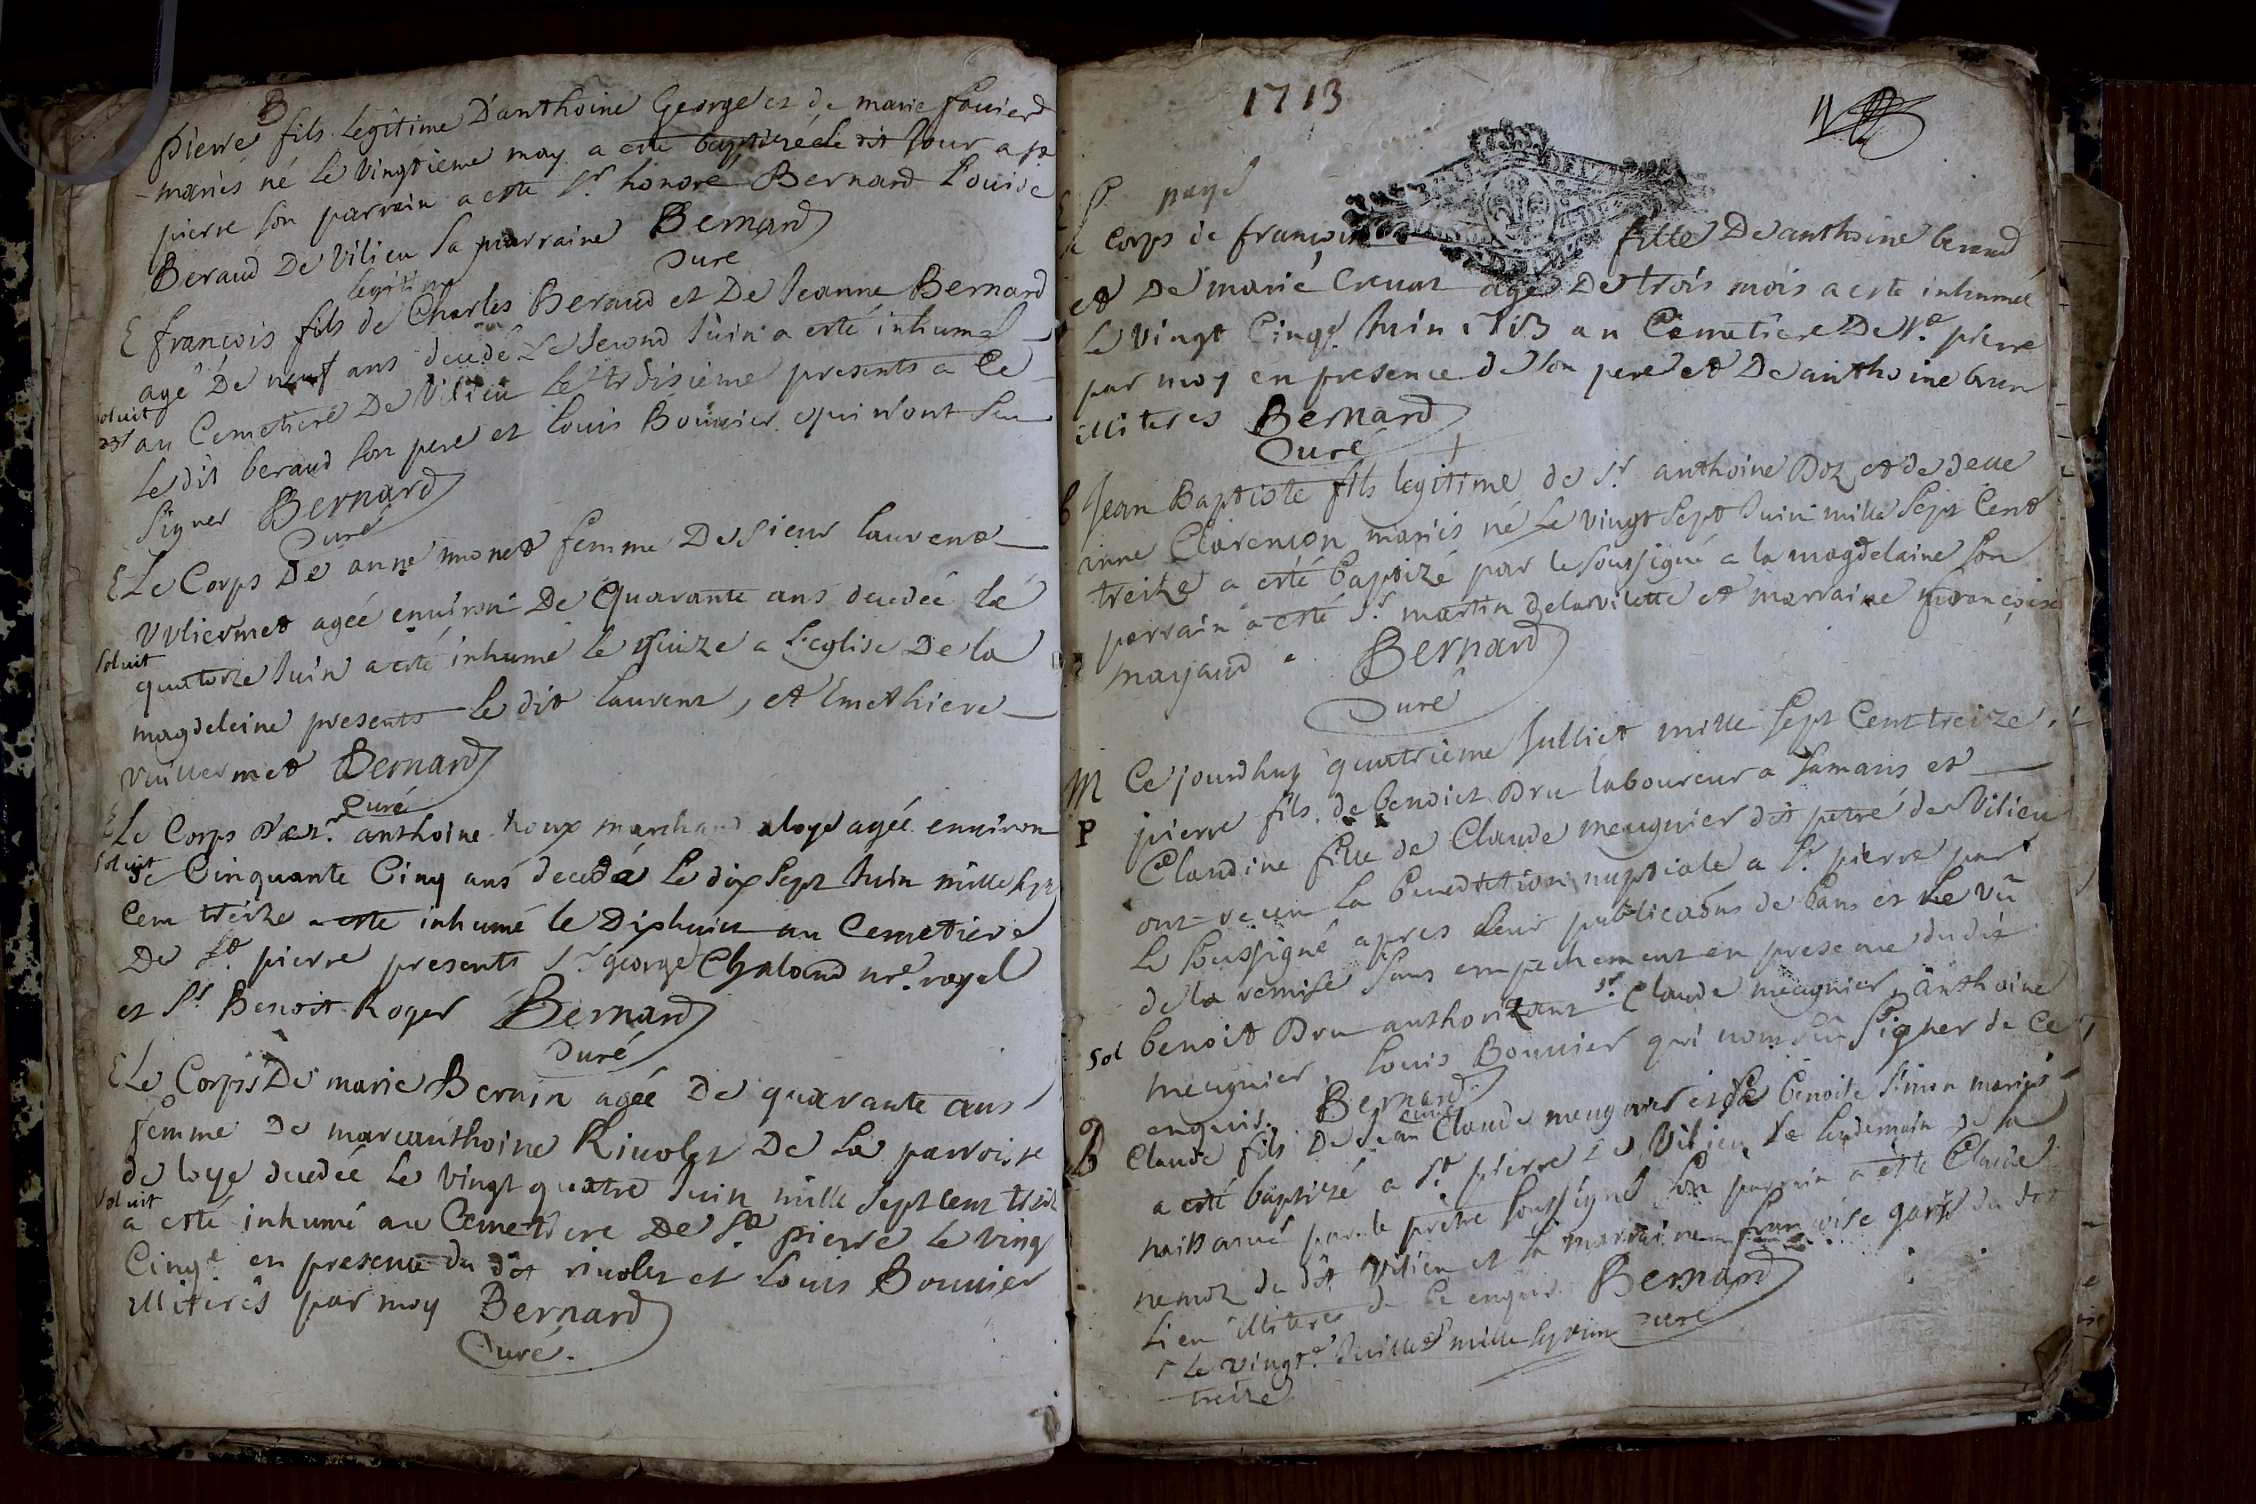 B
pierre fils legitime D'anthoine George et de marie fouier
mariés né le vingtieme may a esté baptizé le dit Jour a st
pierre son parrain a esté Sr honoré Bernard Louise
Beraud De Vilieu sa marraine Bernard
Curé
legitime
E françois fils de Charles Beraud et De Jeanne Bernard
agé De neuf ans decedé Le second Juin a esté inhumé
soluit
au Cemetiere De Vilieu le troisieme presents a Ce
Le dit beraud son pere et Louis Bouuier qui n'ont sçu
signer Bernard
Curé
E Le Corps De anne monet femme De sieur laurent
Vuliermet agée environ De Quarante ans decedée le
soluit
quatorze Juin a esté inhumé le quize a l'eglise De la
magdeleine presents le dit laurent, et Emethiere
vuillermet Bernard
Curé
E Le Corps De sr. anthoine houx marchand a loye agée environ
soluit
de Cinquante Cinq ans decedé Le dix sept Juin mille sept
Cent treize a esté inhumé le Dixhuict au Cemetiere
De St pierre presents Sr george Chaland nre. royal
et Sr Benoit Roger Bernard
Curé
E Le Corps De marie Beruin agée De quarante ans
femme De marcanthoine Riuolet De La parroisse
de loye decedée Le vingt quatre Juin mille sept cent treize
soluit
a esté inhumé au Cemetiere De St pierre le vingt
Cinqe en presence du dit riuolet et Louis Bouuier
illiterés par moy Bernard
Curé.
1713
P. payé
Le Corps de françois fille De anthoine beraud
et De marie Cruat agé De trois mois a esté inhumé
Le vingt Cinqe. Juin 1713 au Cemetiere De St. pierre
par moy en presence de son pere et De anthoine brun
illiteres Bernard
Curé
B Jean Baptiste fils legitime de Sr anthoine Doz et de delle
anne Clarencon mariés né Le vingt sept Juin mille sept Cent
treize a esté baptizé par le soussigné a la magdelaine son
parrain a esté Sr. martin delavilette et marraine françoise
mayaud Bernard
Curé
M Ce jourdhuy quatrieme Julliet mille sept Cent treize
P pierre fils de benoict Dru laboureur a samans et
Claudine fille de Claude meugnier dit petré de Vilieu
ont reçeu La benediction nuptiale a St. pierre par
Le soussigné apres leur publicaons de bans et Le vû
de la remise sans empechement en presence du dit
Sol benoit Dru authorizant sr Claude meugnier, anthoine
meugnier, Louis Bouuier qui nont sçu signer de Ce
enquis. Bernard
curé
B Claude fils De Jean Claude meugnier et de benoite simon mariés
a esté baptizé a St pierre De Vilieu Le lendemain de sa
naissance par le prêtre soussigné son parrain a esté Claude
nemoz du dit Vilieu et sa marraine françoise gariod du dit
Lieu illiteres de Ce enquis Bernard
Curé
Le vingte. Juillet mille sept cent
treize